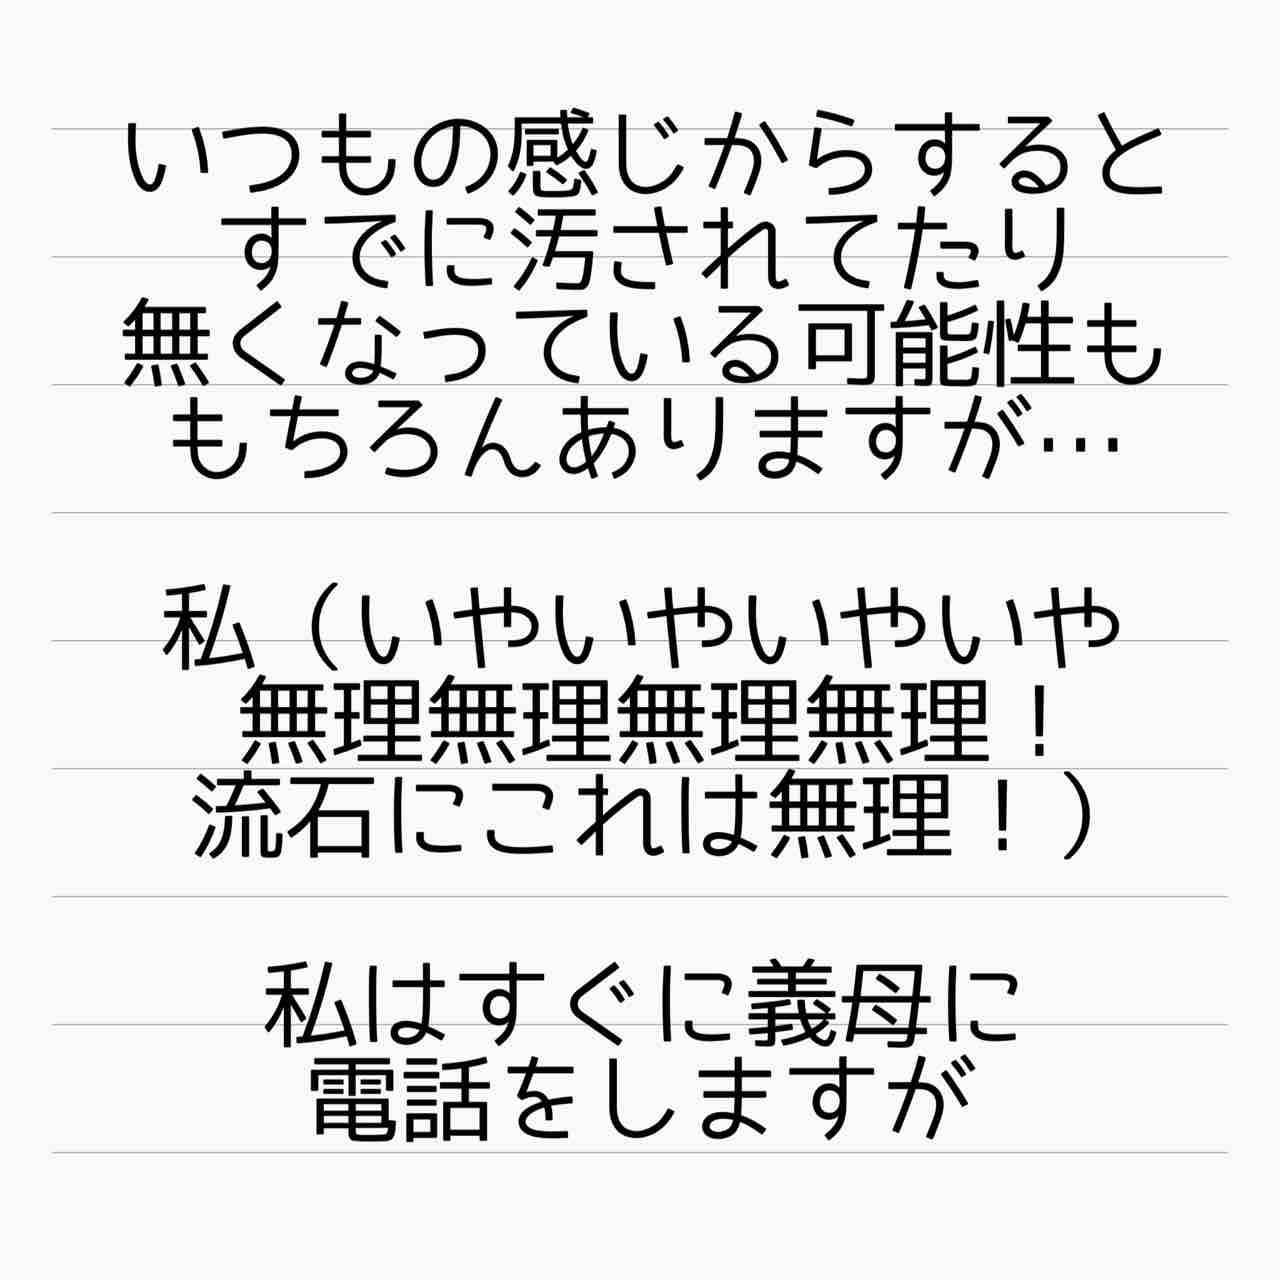 いつもの感じからすると
すでに汚されてたり
無くなっている可能性も
もちろんありますが…
私（いやいやいやいや
無理無理無理無理！
流石にこれは無理！）
私はすぐに義母に
電話をしますが